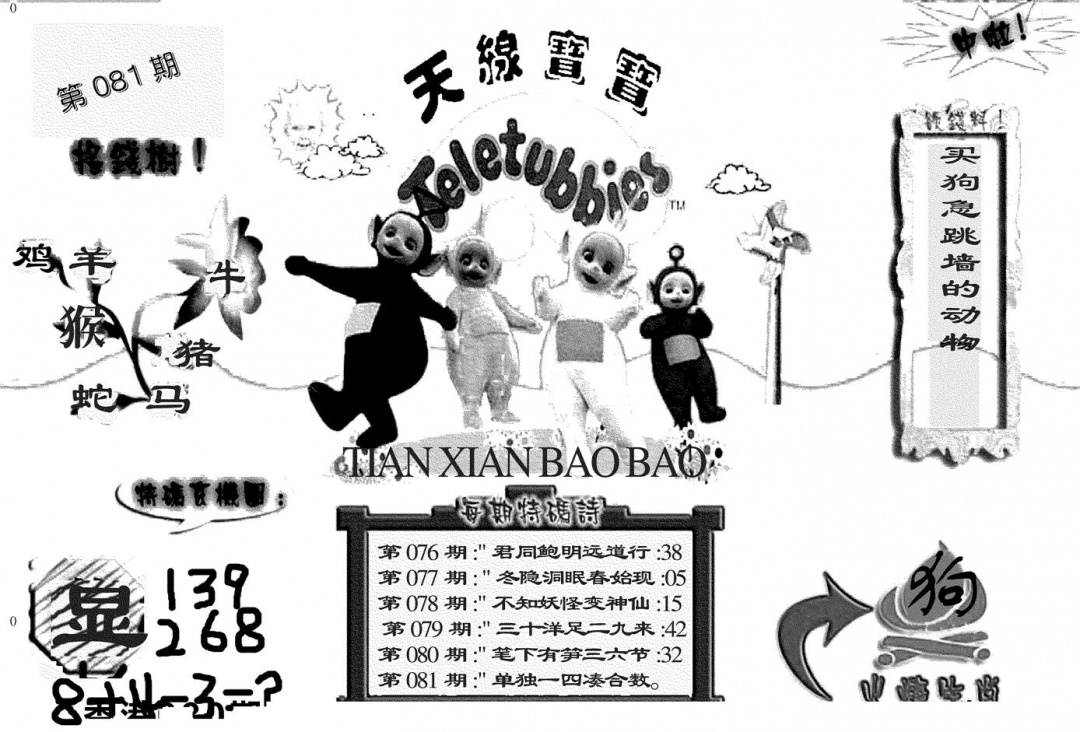 0
第 081 期
中啦！
天線寶寶
Teletubbies
TM
搖錢樹！
鸡
羊
牛
猴
猪
蛇
马
买狗急跳墙的动物
TIAN XIAN BAO BAO
每期特碼詩
第 076 期 :" 君同鲍明远道行 :38
第 077 期 :" 冬隐洞眠春始现 :05
第 078 期 :" 不知妖怪变神仙 :15
第 079 期 :" 三十洋足二九来 :42
第 080 期 :" 笔下有笋三六节 :32
第 081 期 :" 单独一四凑合数。
特碼玄機圖：
139
268
0
狗
火燒生肖